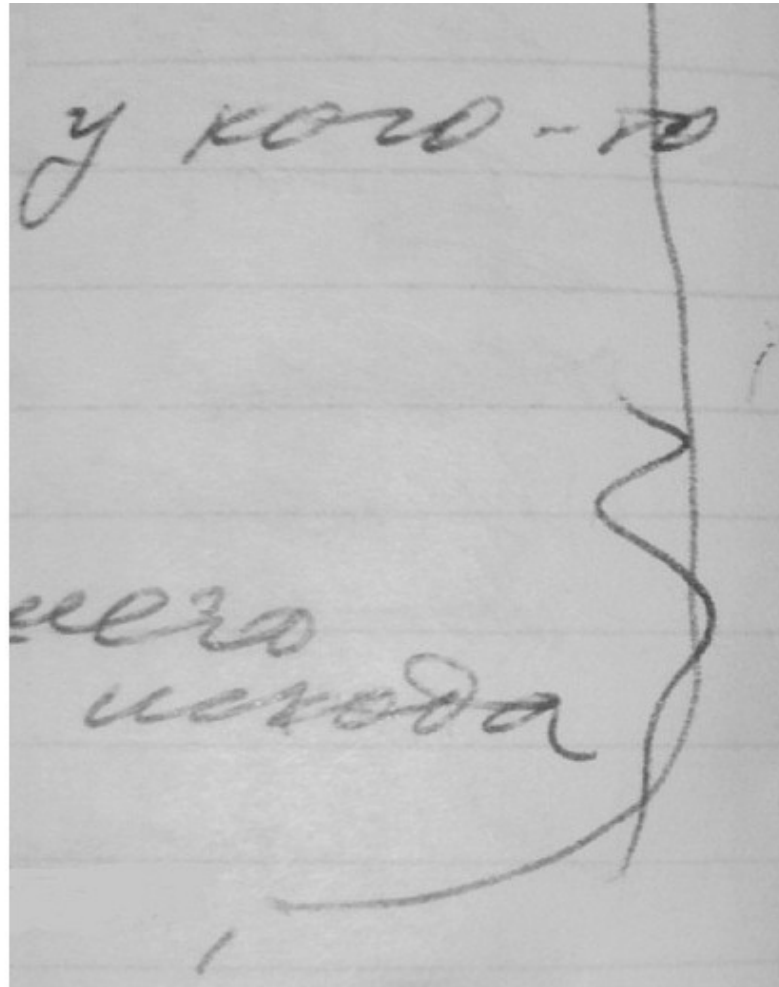 у кого-то
шего
исхода